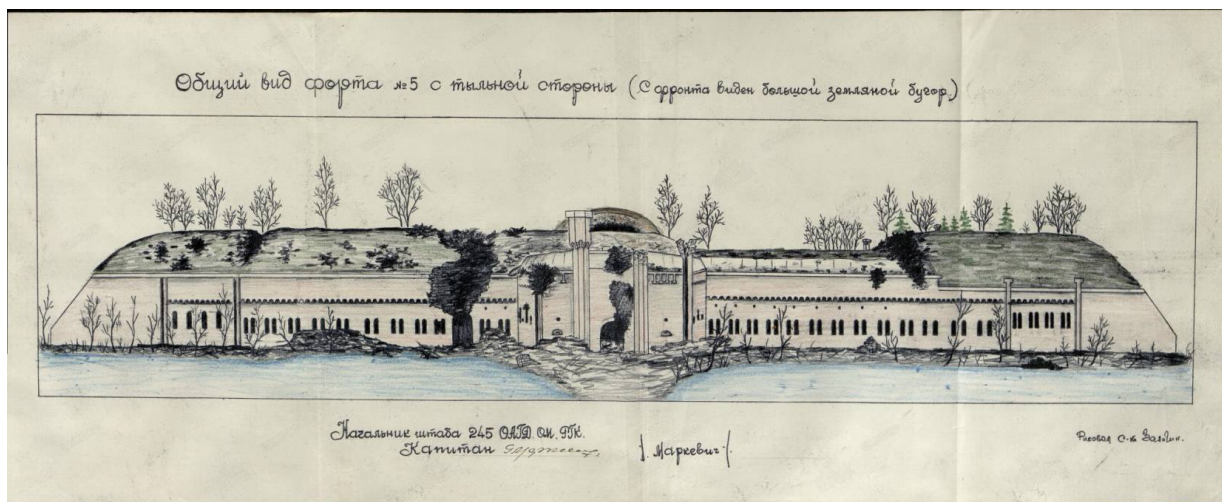 Общий вид форта №5 с тыльной стороны (С фронта виден большой земляной бугор.)
Начальник штаба 245 ОАГД. ОМ. РГК.
Капитан /. Маркевич ./
Рисовал С-т